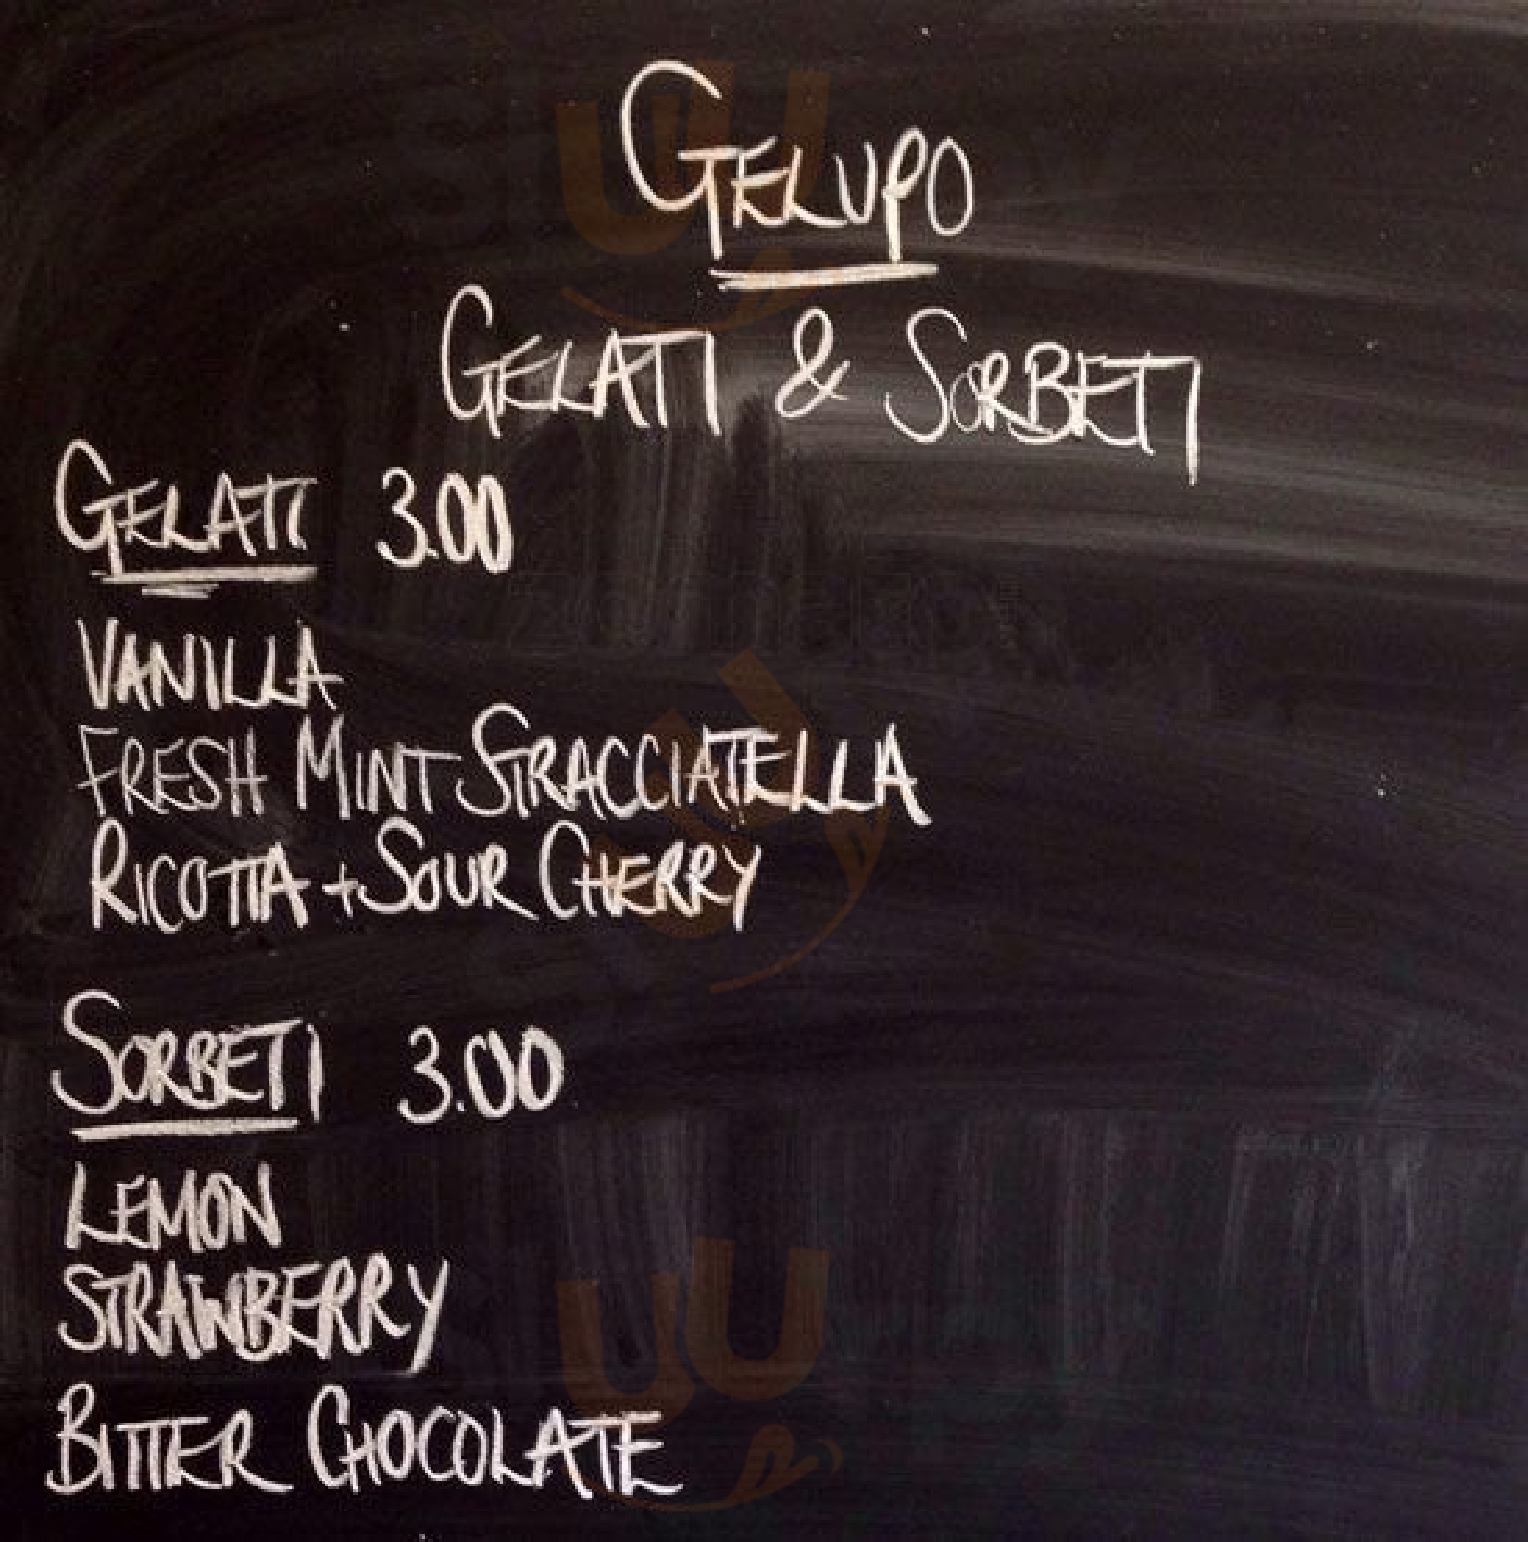 GELUPO
GELATI & SORBETI
GELATI 3.00
VANILLA
FRESH MINT STRACCIATELLA
RICOTTA + SOUR CHERRY
SORBETI 3.00
LEMON
STRAWBERRY
BITTER CHOCOLATE